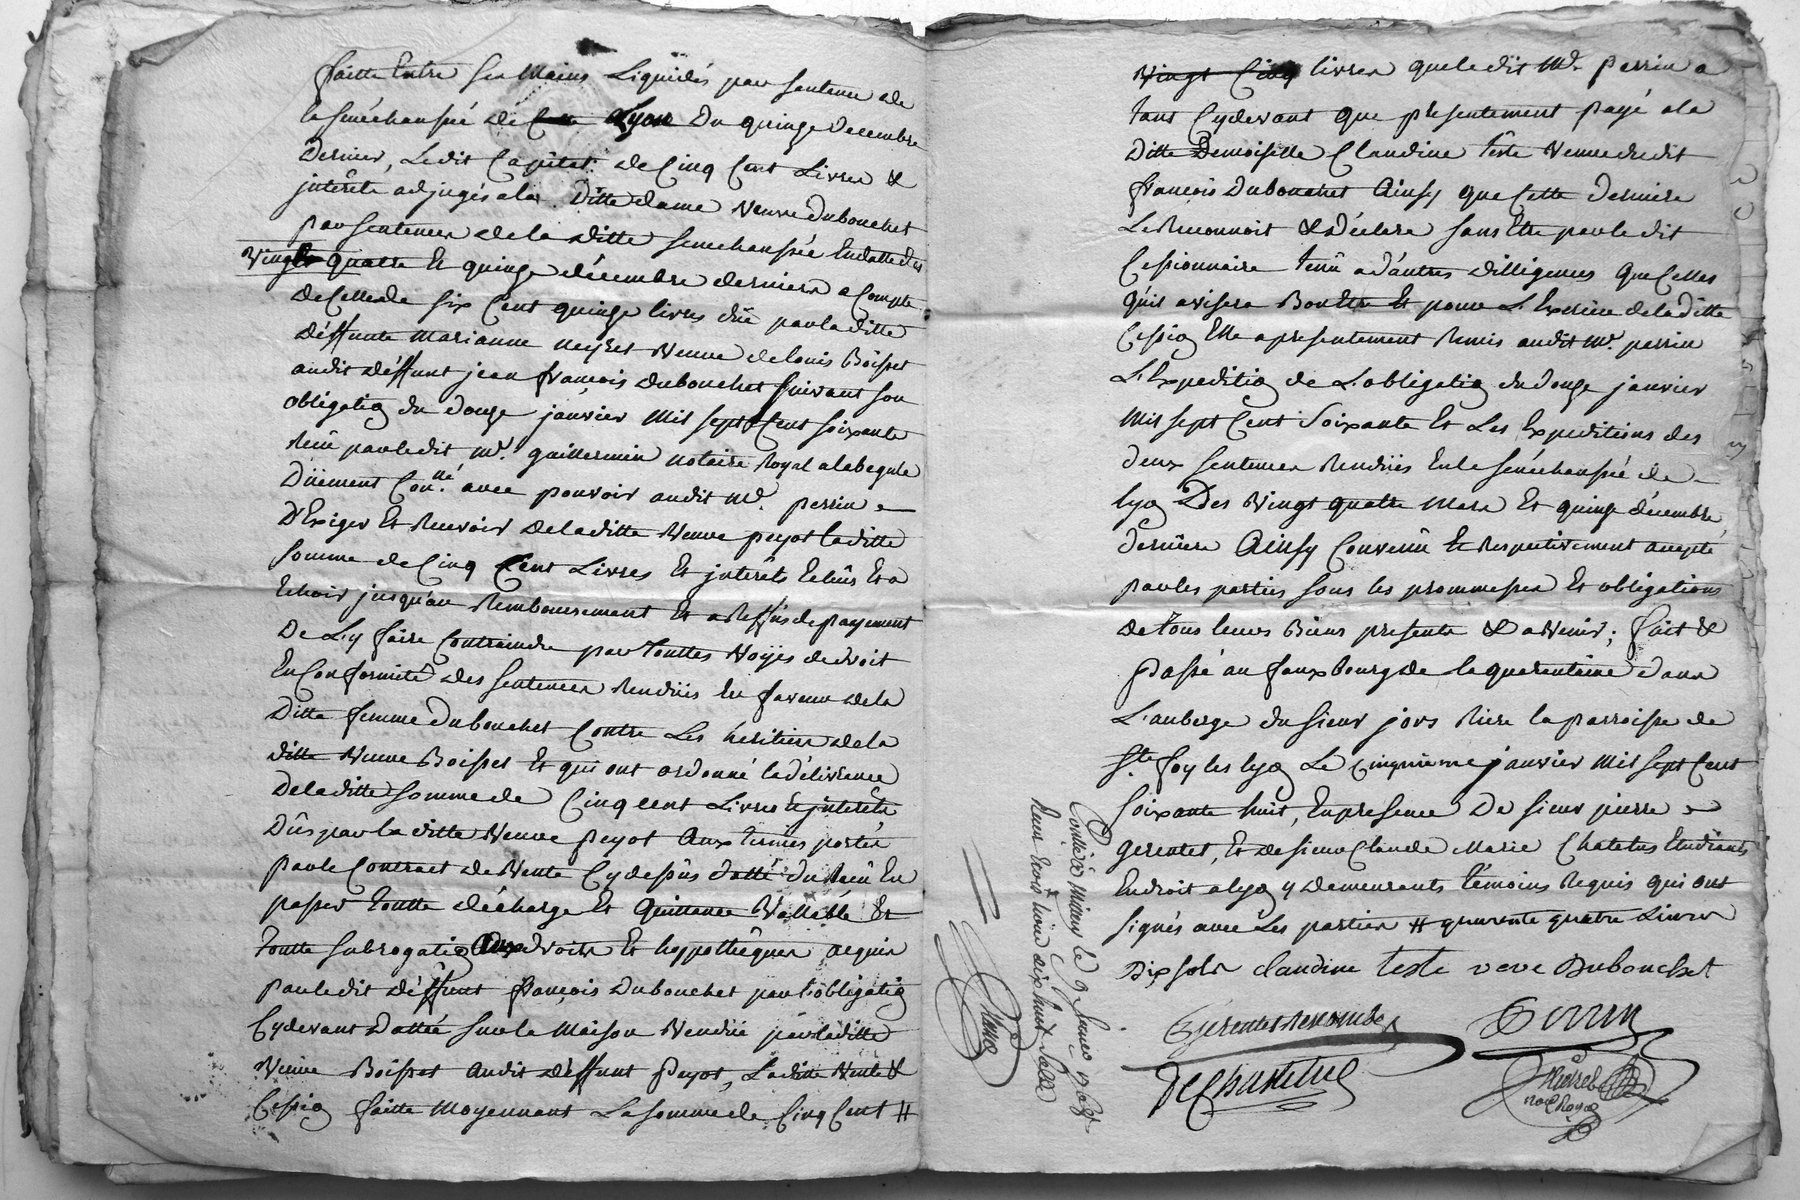 faitte Entre ses Mains Liquidés par sentence de
la sénéchaussée de Lyon Du quinze Decembre
dernier, Ledit Capital de Cinq Cent Livres &
intérêts adjugés a la Ditte dame Veuve Dubouchet
par sentences de la ditte senechaussée En datte des
Vingt quatre Et quinze décembre derniers a Compte
de Celle de six Cent quinze livres dûe par la ditte
déffunte Marianne neyret Veuve de louis Boisset
audit déffunt jean françois dubouchet suivant son
obligatio du douze janvier Mil sept Cent soixante
Reçû par ledit Me. guillermin notaire Royal
Düement Con.llé avec pouvoir audit Mr. perrin
D'Exiger Et Recevoir de la ditte Veuve peyot la ditte
somme de Cinq Cent Livres Et intérêts Echûs Et a
Echoir jusqu'au Remboursement Et a Reffus de payement
De L'y faire Contraindre par touttes Voyes de droit
En Conformité des sentences Rendües En faveur de la
Ditte femme dubouchet Contre Les héritiers de la
ditte Veuve Boisset Et qui ont ordonné la délivrance
De la ditte somme de Cinq cent Livres Et intérêts
Dûs par la ditte Veuve peyot Aux termes portés
par le Contract de Vente Cy dessus datté du Reçû En
passer toutte décharge Et Quittance Vallable Et
toutte subrogatio Aux droits Et hyppothêques acquis
par ledit déffunt françois Dubouchet par l'obligatio
Cy devant Dattée sur la Maison Vendüe par la ditte
Veuve Boisset audit déffunt peyot, La ditte Vente &
Cessio faitte Moyennant La somme de Cinq Cent #
Vingt Cinq livres que le dit Mr. perrin a
tant Cy devant que présentement payé a la
ditte Demoiselle Claudine teste Veuve dudit
françois Dubouchet Ainsy que Cette dernière
Le Reconnoit & déclare sans Etre par le dit
Cessionnaire tenû a d'autres dilligences que Celles
qu'il avisera Bon Etre Et pour L'Exercice de la ditte
Cessio Elle a presentement Remis audit Mr. perrin
L'Expeditio de L'obligatio du douze janvier
Mil sept Cent soixante Et Les Expeditions des
deux sentences Rendües En la sénéchaussée de
lyo Des Vingt quatre Mars Et quinze décembre
derniers Ainsy Convenû Et Respectivement accepté
par les parties sous les promesses Et obligations
de tous leurs Biens presents & a venir; fait &
passé au fauxbourg de la quarentaine dans
L'auberge du sieur jors Riere la parroisse de
Ste. foy les lyo Le Cinquieme janvier Mil sept Cent
soixante huit, En presence De sieur pierre
gerentet, Et de sieur Claude Marie Chatelus Etudiants
En droit a lyo y demeurants témoins Requis qui ont
signés avec Les parties # quarente quatre Livres
dix sols claudine teste veve Dubouchet
Perrin
DeChatelus
not Royal
Controllé a le 9 janvier 1768